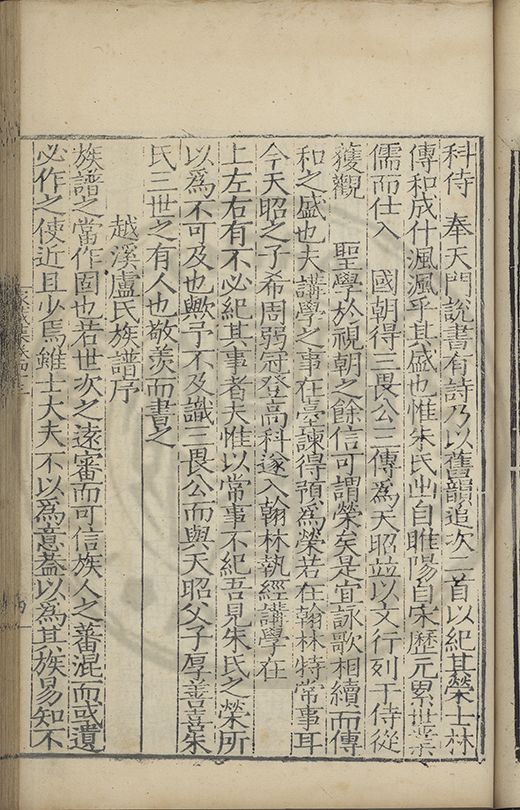 科侍　奉天門說書有詩乃以舊韻追次二首以紀其榮士林
傳和成什渢渢乎其盛也惟朱氏出自睢陽自宋歷元累世業
儒而仕入　國朝得三畏公三傳為天昭並以文行列于侍從
獲觀　聖學於視朝之餘信可謂榮矣是宜詠歌相續而傳
和之盛也夫講學之事在臺諫得預為榮若在翰林特常事耳
今天昭之子希周弱冠登高科遂入翰林執經講學在
上左右有不必紀其事者夫惟以常事不紀吾見朱氏之榮所
以為不可及也歟予不及識三畏公而與天昭父子厚善喜朱
氏三世之有人也敬羨而書之
越溪盧氏族譜序
族譜之當作固也若世次之遠審而可信族人之蕃混而或遺
必作之使近且少焉雖士大夫不以為意葢以為其族易知不